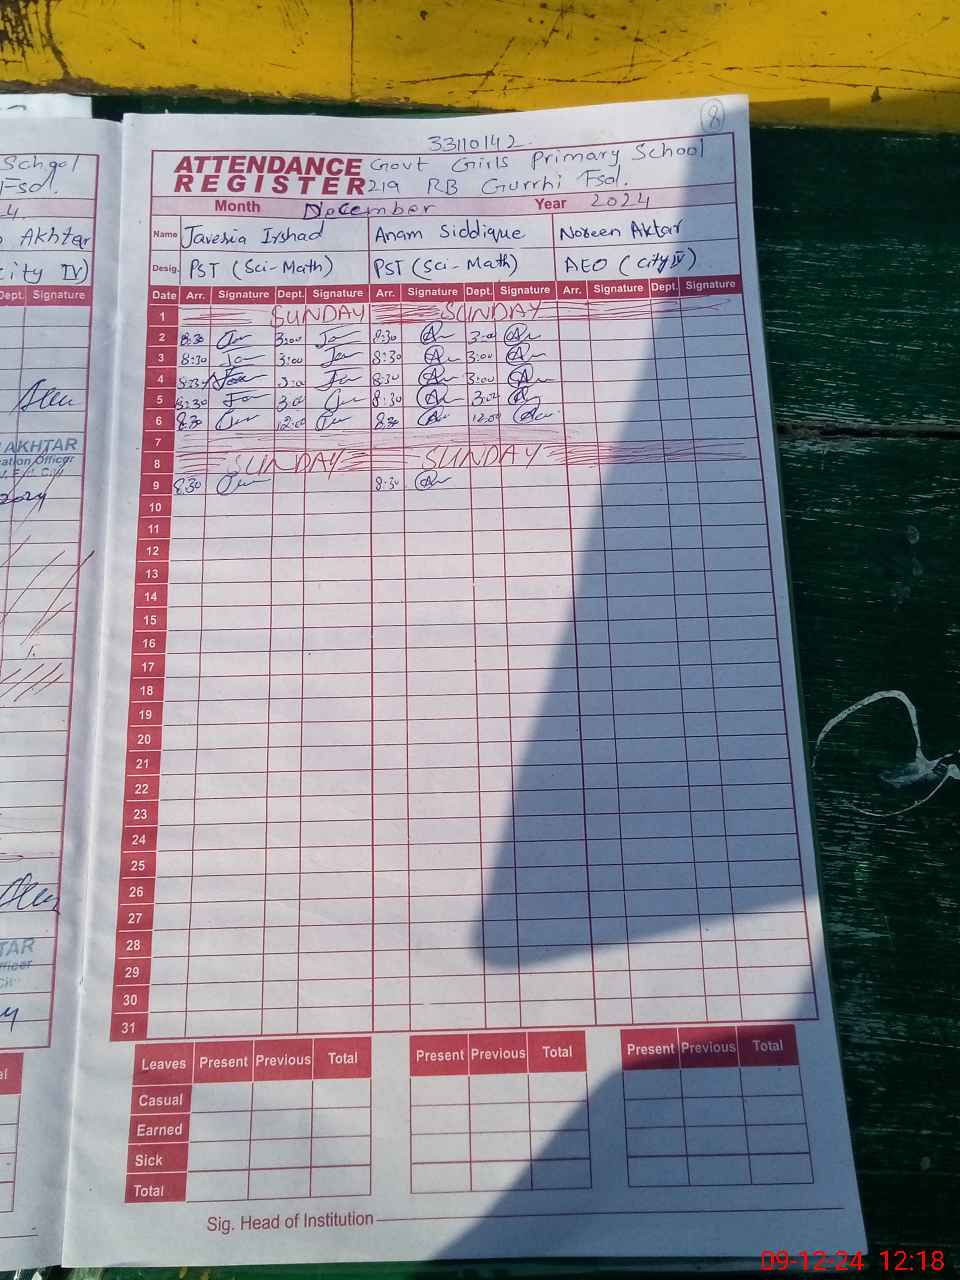 8
33110142
ATTENDANCE REGISTER
Govt Girls Primary School
219 RB Gurrhi Fsd.
Month December Year 2024
Name Javeria Irshad Anam Siddique Noreen Aktar
Desig. PST (Sci-Math) PST (Sci-Math) AEO (City IV)
Date Arr. Signature Dept. Signature Arr. Signature Dept. Signature Arr. Signature Dept. Signature
1 SUNDAY SUNDAY
2 8:30 3:00 8:30 3:00
3 8:30 3:00 8:30 3:00
4 8:30 3:00 8:30 3:00
5 8:30 3:00 8:30 3:00
6 8:30 12:00 8:30 12:00
7
8 SUNDAY SUNDAY
9 8:30 8:30
10
11
12
13
14
15
16
17
18
19
20
21
22
23
24
25
26
27
28
29
30
31
Leaves Present Previous Total Present Previous Total Present Previous Total
Casual
Earned
Sick
Total
Sig. Head of Institution
School
Fsd.
Akhtar
City IV)
Dept. Signature
AKHTAR
09-12-24 12:18